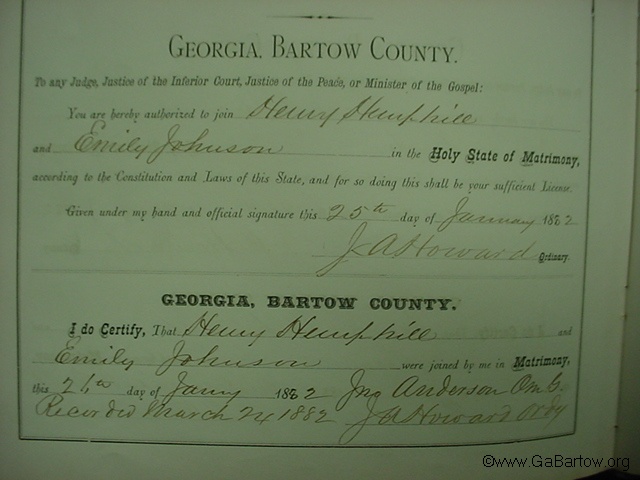 GEORGIA, BARTOW COUNTY.
To any Judge, Justice of the Inferior Court, Justice of the Peace, or Minister of the Gospel:
You are hereby authorized to join Henry Hemphill
and Emily Johnson in the Holy State of Matrimony,
according to the Constitution and Laws of this State, and for so doing this shall be your sufficient License.
Given under my hand and official signature this 25th day of January 1882
J A Howard Ordinary.
GEORGIA, BARTOW COUNTY.
I do Certify, That Henry Hemphill and
Emily Johnson were joined by me in Matrimony,
this day of Jany 1882 Jno Anderson
Recorded March 24 1882 J A Howard Ordy
©www.GaBartow.org